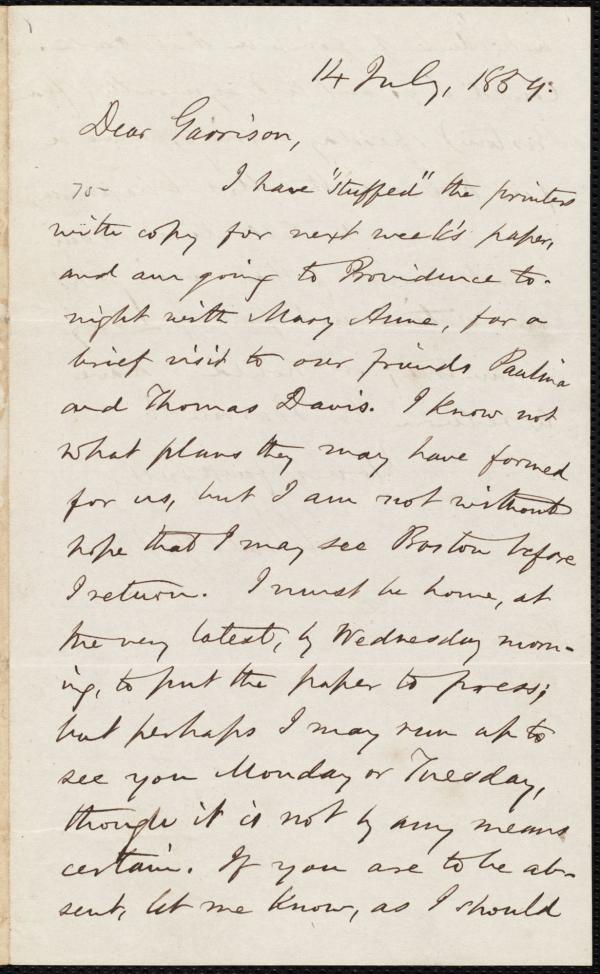 14 July, 1854.
Dear Garrison,
I have "stuffed" the printers
with copy for next week's paper,
and am going to Providence to-
night with Mary Anne, for a
brief visit to our friends Paulina
and Thomas Davis. I know not
what plans they may have formed
for us, but I am not without
hope that I may see Boston before
I return. I must be home, at
the very latest, by Wednesday morn-
ing, to put the paper to press;
but perhaps I may run up to
see you Monday or Tuesday,
though it is not by any means
certain. If you are to be ab-
sent, let me know, as I should